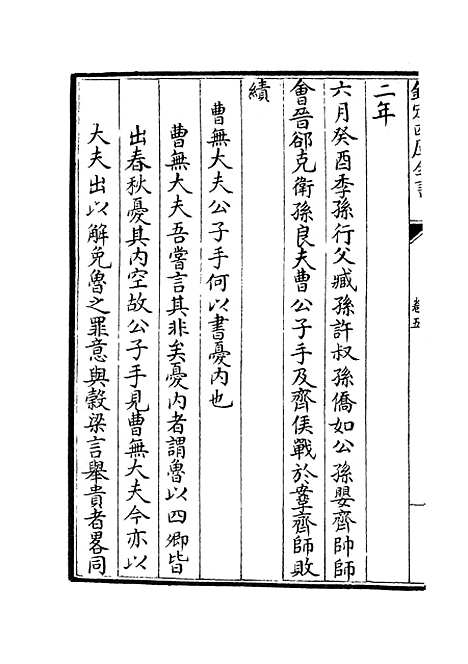 欽定四庫全書
卷五
二年
六月癸酉季孫行父臧孫許叔孫僑如公孫嬰齊帥師
會晉郤克衛孫良夫曹公子手及齊侯戰於鞌齊師敗
績
曹無大夫公子手何以書憂内也
曹無大夫吾嘗言其非矣憂内者謂魯以四卿皆
出春秋憂其内空故公子手見曹無大夫今亦以
大夫出以解免魯之罪意與榖梁言舉貴者畧同